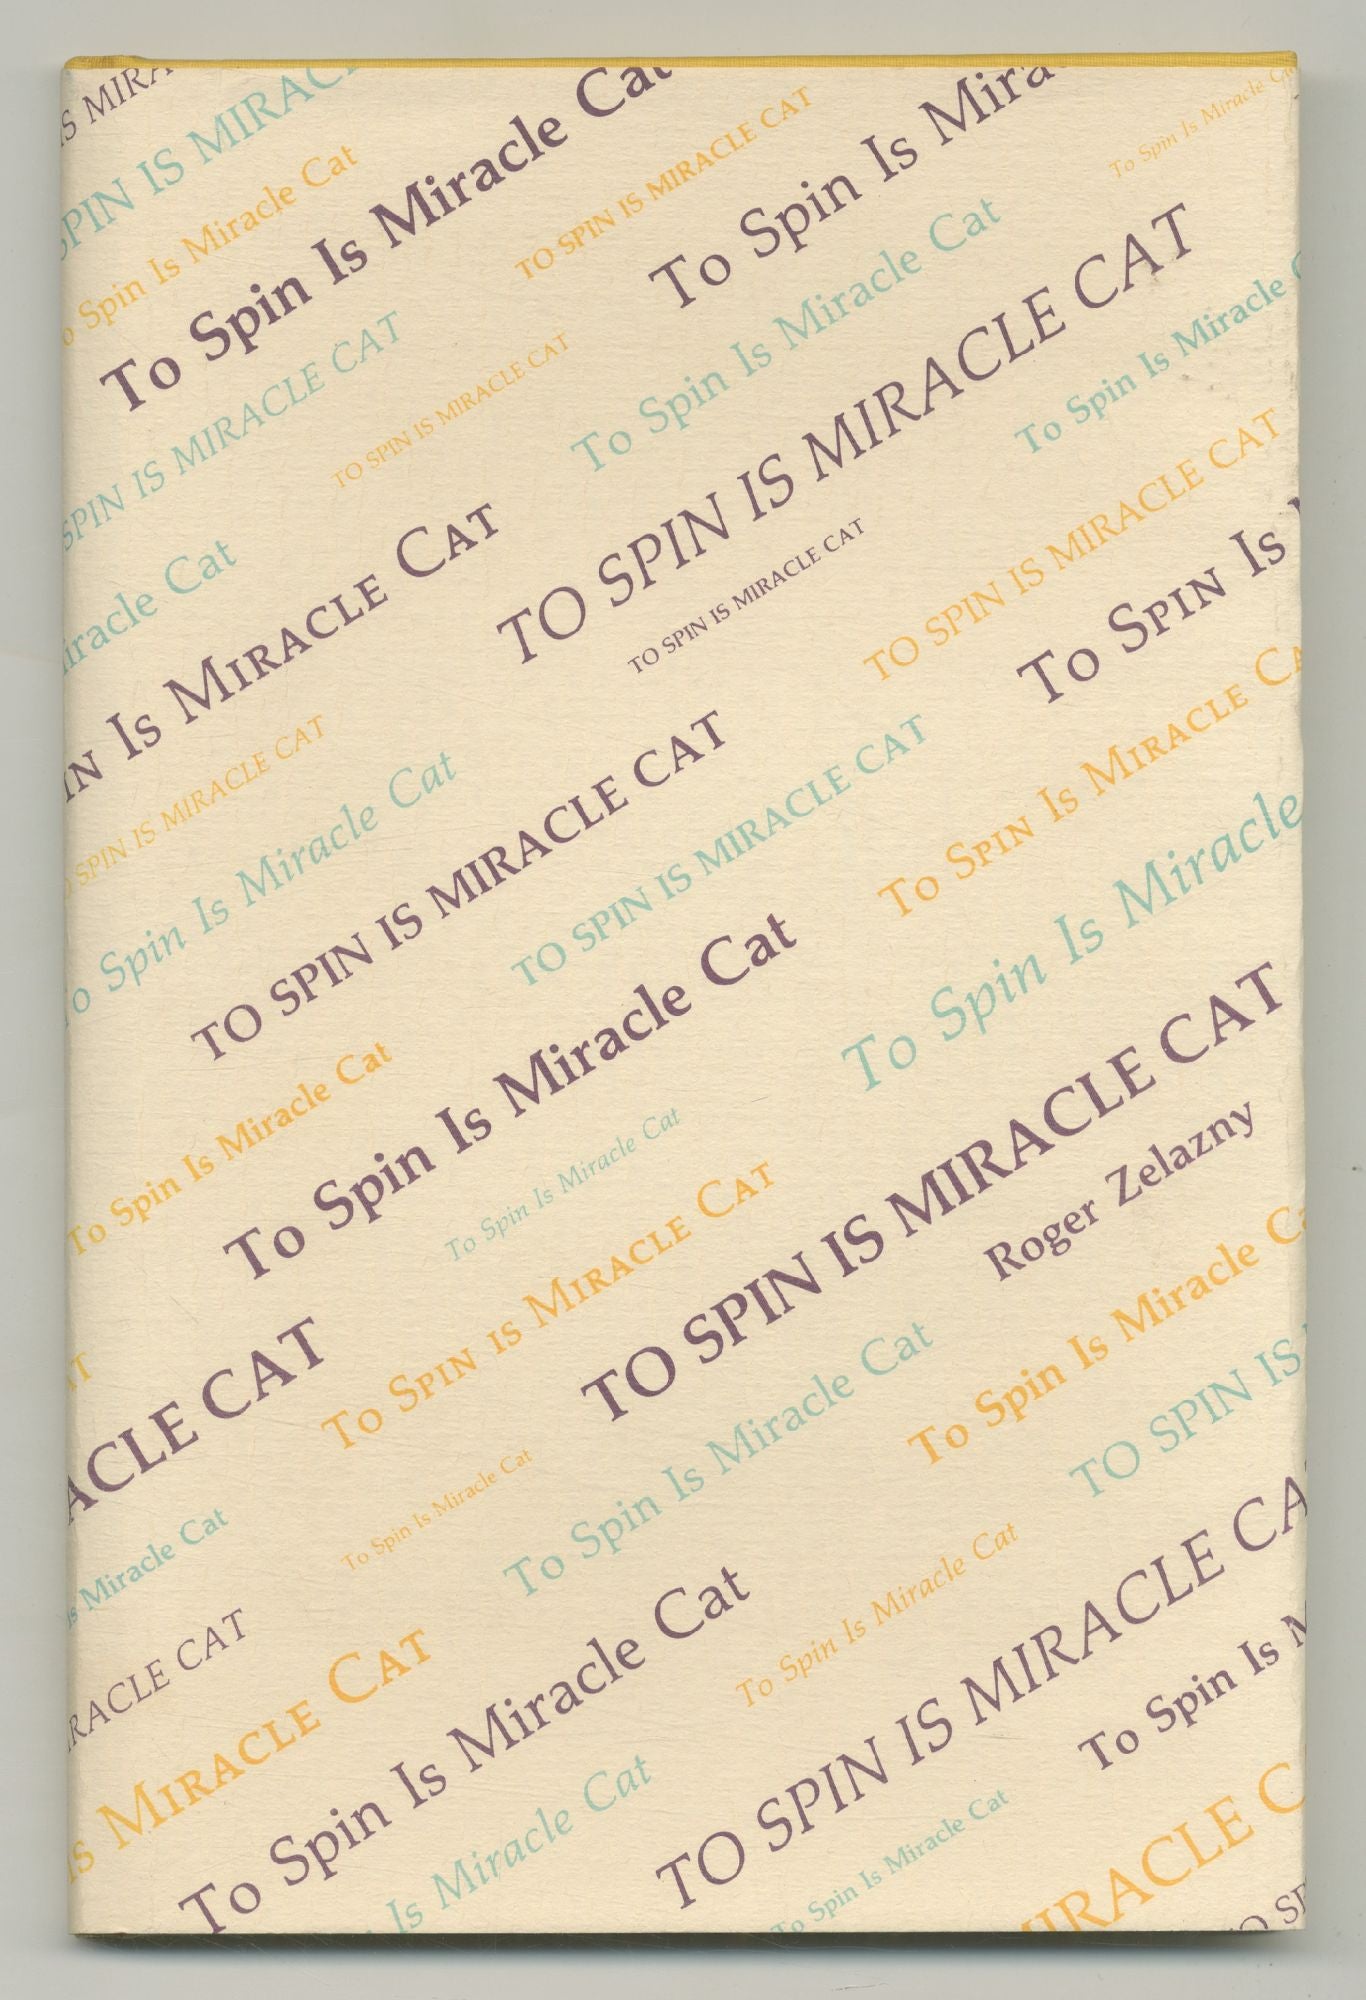 IS MIRA
SPIN IS MIRAC
To Spin Is Miracle Cat
To Spin Is Miracle Cat
TO SPIN IS MIRACLE CAT
To Spin Is Mira
To Spin Is Miracle Ca
SPIN IS MIRACLE CAT
TO SPIN IS MIRACLE CAT
To Spin Is Miracle Cat
TO SPIN IS MIRACLE CAT
To Spin Is Miracle C
iracle Cat
IN IS MIRACLE CAT
TO SPIN IS MIRACLE CAT
TO SPIN IS MIRACLE CAT
TO SPIN IS
O SPIN IS MIRACLE CAT
To Spin Is Miracle Cat
TO SPIN IS MIRACLE CAT
TO SPIN IS MIRACLE CAT
TO SPIN IS MIRACLE CA
To Spin Is Miracle
To Spin Is Miracle Cat
To Spin Is Miracle Cat
To Spin Is Miracle Cat
TO SPIN IS MIRACLE CAT
Roger Zelazny
AT
ACLE CAT
TO SPIN IS MIRACLE CAT
To Spin Is Miracle Cat
To Spin Is Miracle Cat
To Spin Is Miracle Ca
TO SPIN IS
Is Miracle Cat
RACLE CAT
IS MIRACLE CAT
To Spin Is Miracle Cat
To Spin Is Miracle Cat
TO SPIN IS MIRACLE CA
To Spin Is M
Is Miracle Cat
To Spin Is Miracle Cat
MIRACLE C
O SP